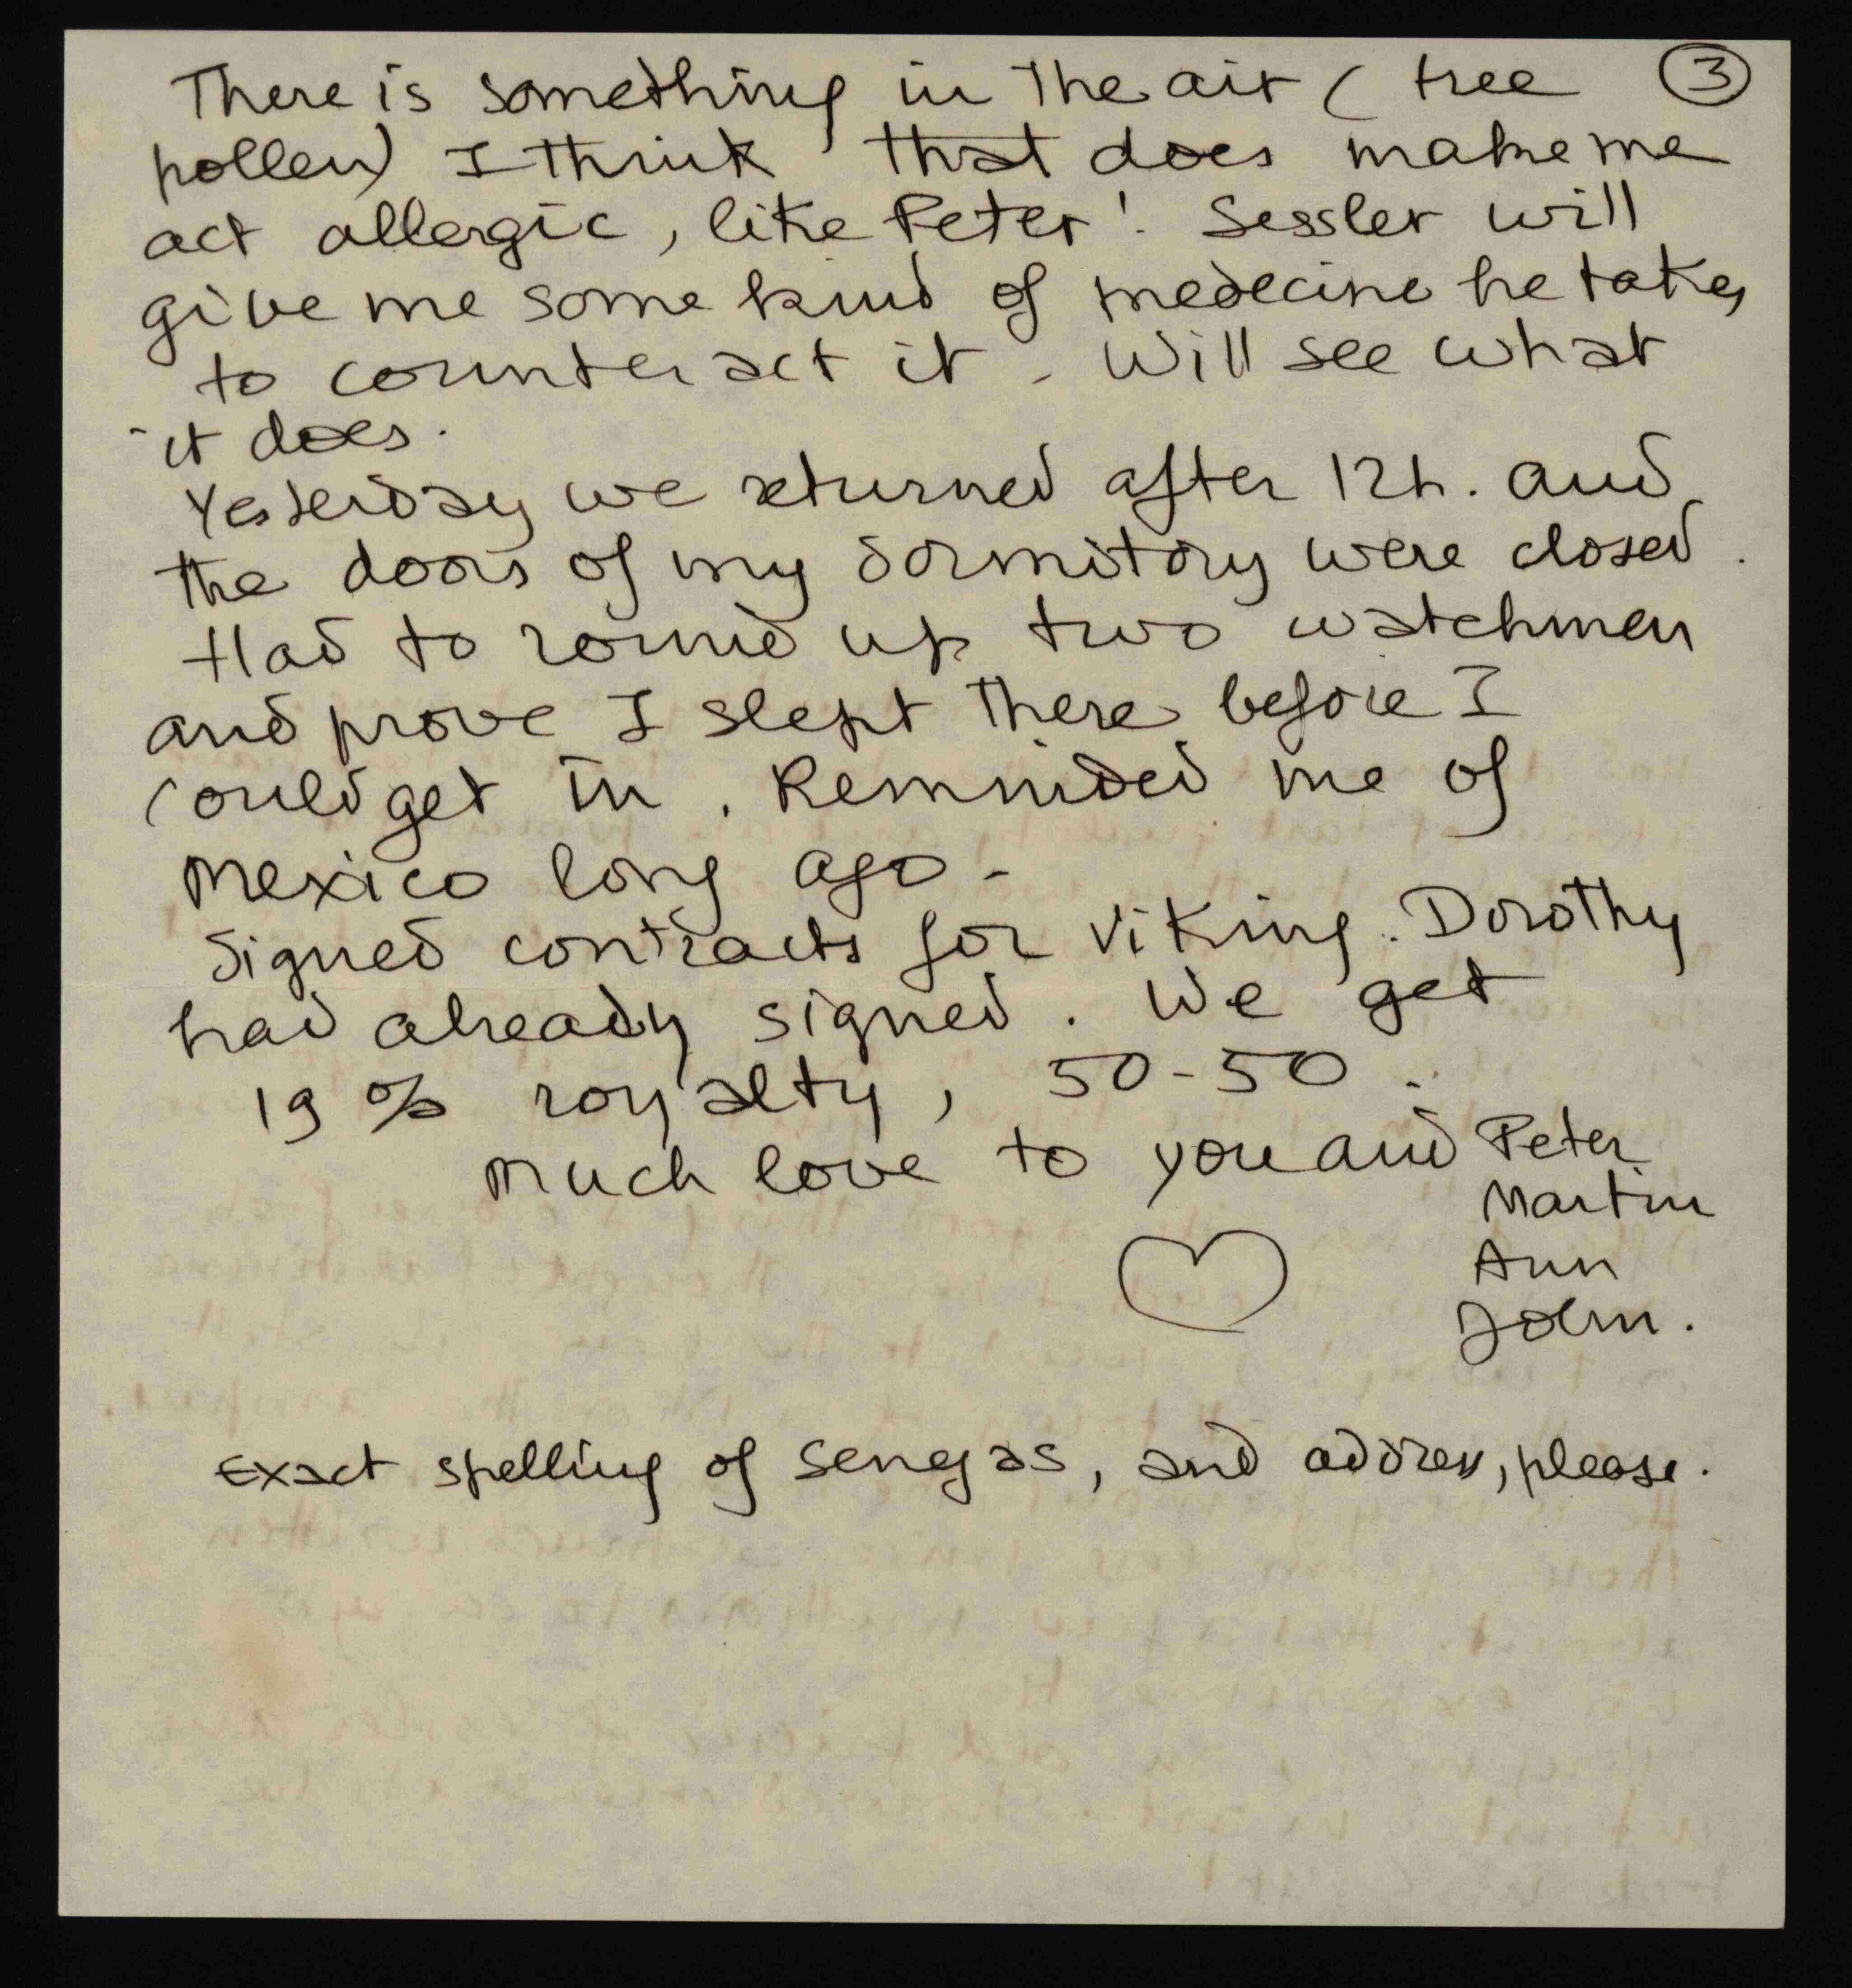 There is something in the air ( tree ③
pollen) I think that does make me
act allergic, like Peter! Sessler will
give me some kind of medecine he takes
to counteract it. Will see what
it does.
Yesterday we returned after 12h. and
the doors of my dormitory were closed.
Had to round up two watchmen
and prove I slept there before I
could get in. Reminded me of
Mexico long ago -
Signed contracts for Viking. Dorothy
had already signed. We get
19 % royalty, 50-50.
Much love to you and Peter
Martin
Ann
John.
Exact spelling of Senegas, and address, please.